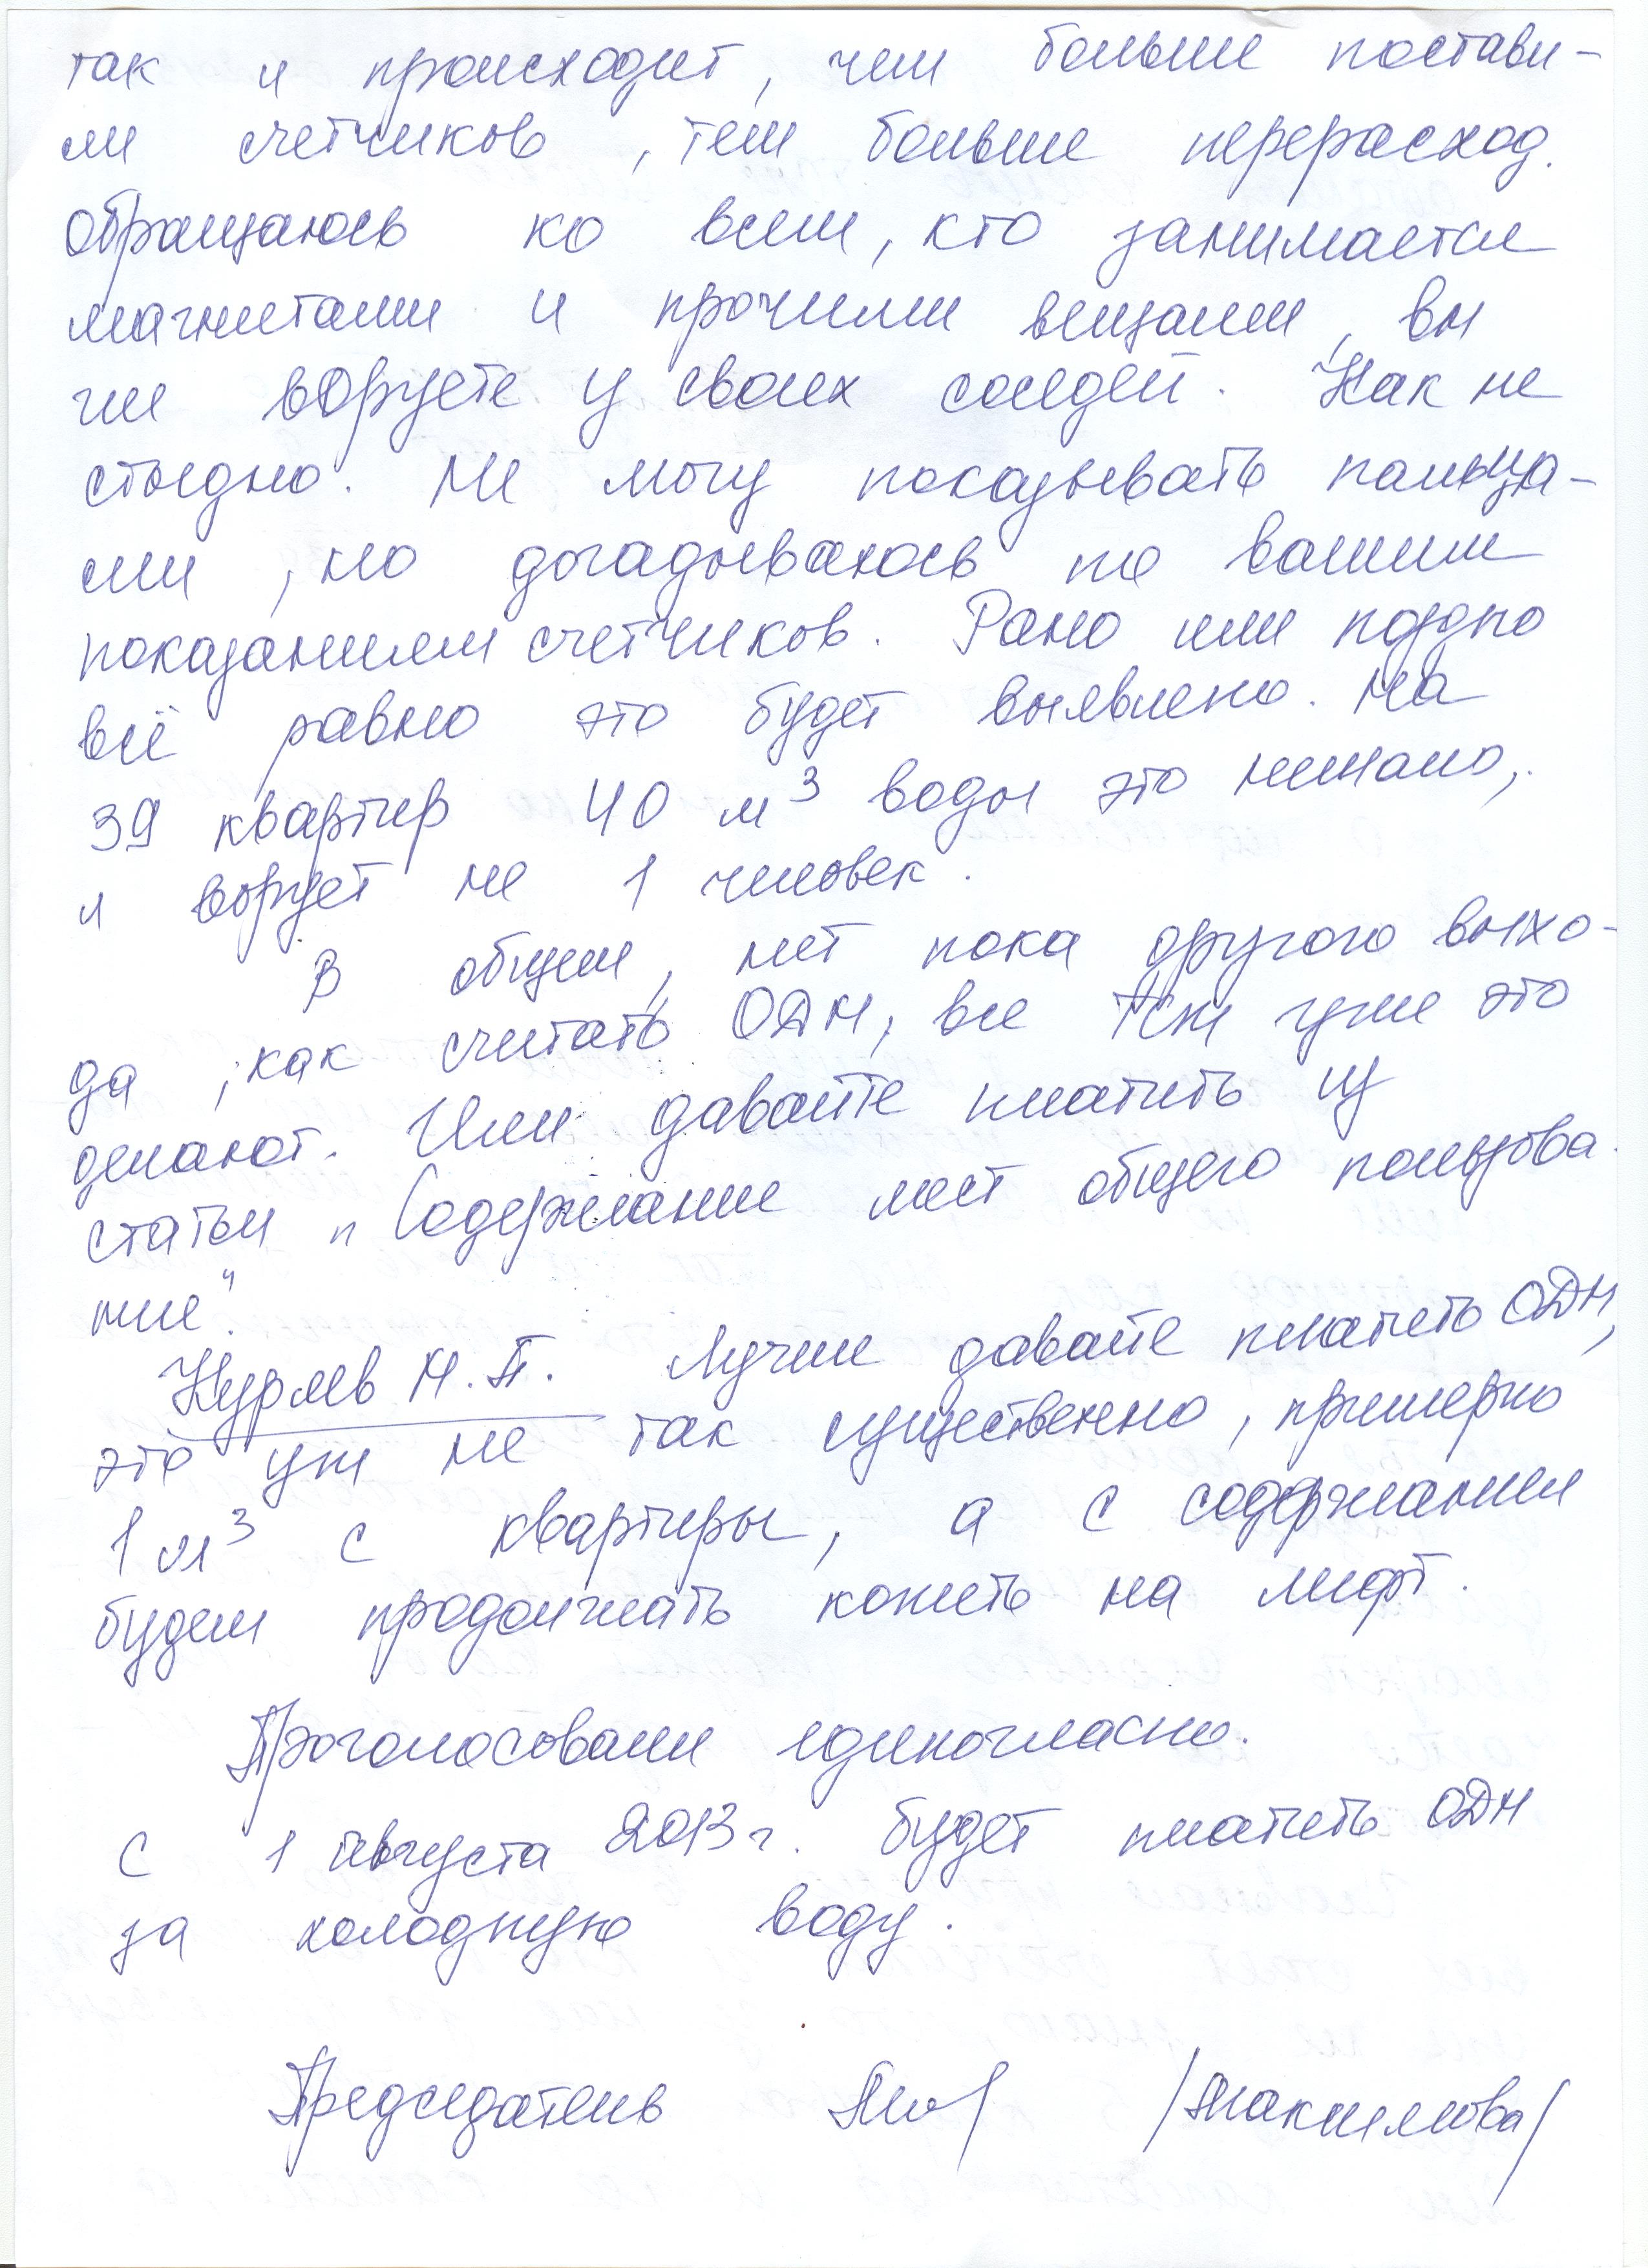 так и происходит, чем больше постави-
ли счетчиков, тем больше перерасход.
Обращаюсь ко всем, кто занимается
магнитами и прочими вещами, вы
же воруете у своих соседей. Как не
стыдно. Не могу показывать пальца-
ми, но догадываюсь по вашим
показаниям счетчиков. Рано или поздно
всё равно это будет выявлено. На
39 квартир 40 м³ воды это немало,
и ворует не 1 человек.
В общем, нет пока другого выхо-
да, как считать ОДН, все ТСЖ уже это
делают. Или давайте платить из
статьи „Содержание мест общего пользова-
ние".
Куряев Н.П. Лучше давайте платить ОДН,
это уж не так существенно, примерно
1 м³ с квартиры, а с содержания
будем продолжать копить на лифт.
Проголосовали единогласно.
С 1 августа 2013 г. будет платить ОДН
за холодную воду.
Председатель /Маклимова/